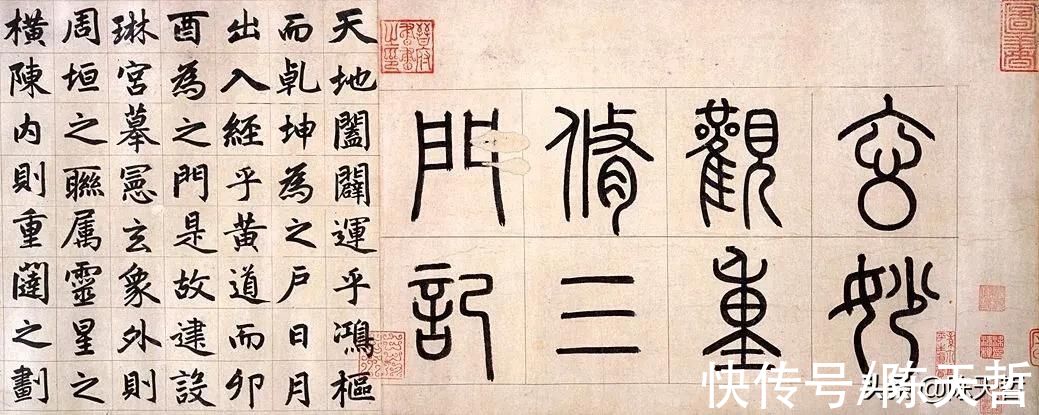 玄妙
觀重
脩三
門記
天地闔闢運乎鴻樞
而乹坤為之户日月
出入經乎黃道而卯
酉為之門是故建設
琳宮摹憲玄象外則
周垣之聯属靈星之
橫陳内則重闥之劃
快传号/陈天哲
头条@陈天哲